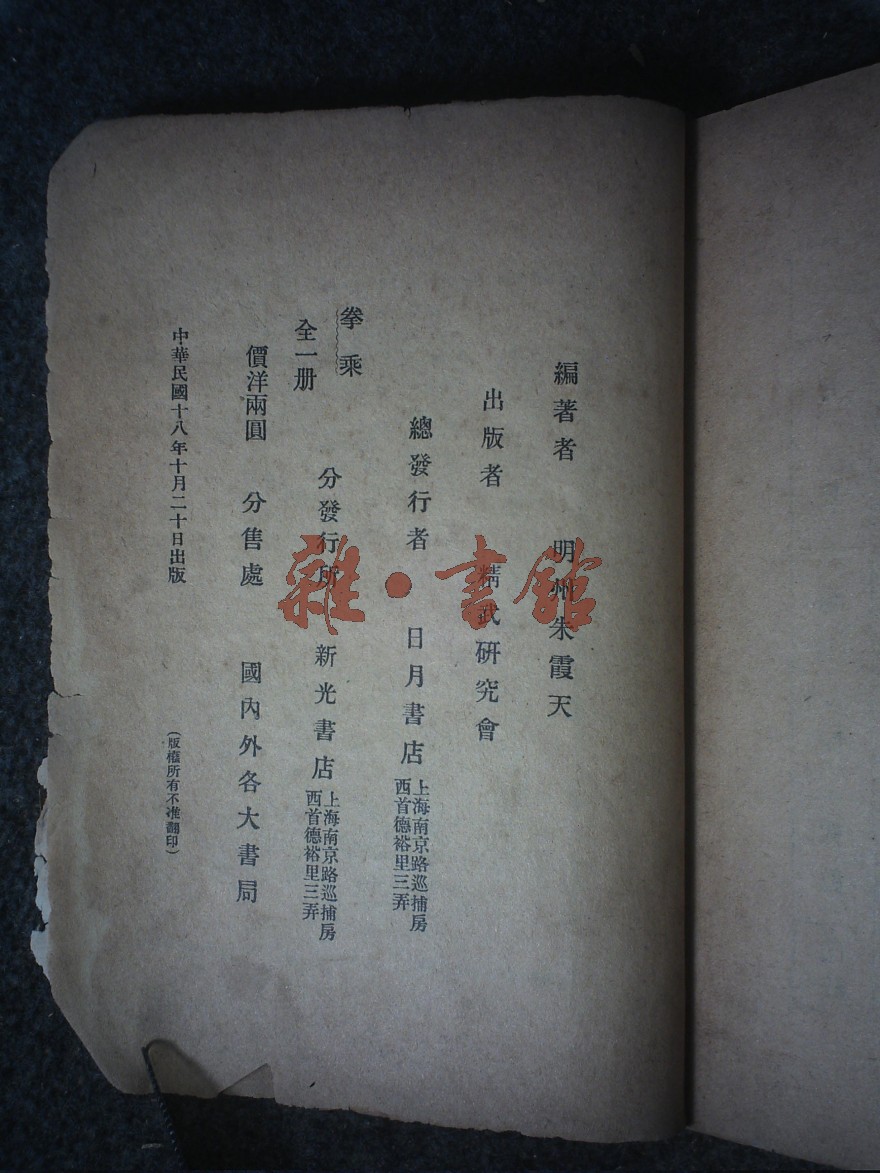 編著者 明州朱霞天
出版者 精武研究會
總發行者 日月書店 上海南京路巡捕房
西首德裕里三弄
拳乘
分發行所 新光書店 上海南京路巡捕房
西首德裕里三弄
全一册
價洋兩圓 分售處 國內外各大書局
中華民國十八年十月二十日出版 (版權所有不准翻印)
雜·書館